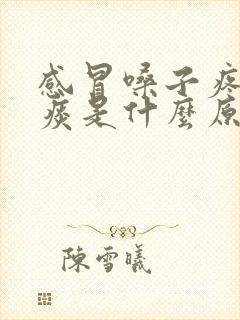 感冒嗓子疼
痰是什麼原
陳雪曦